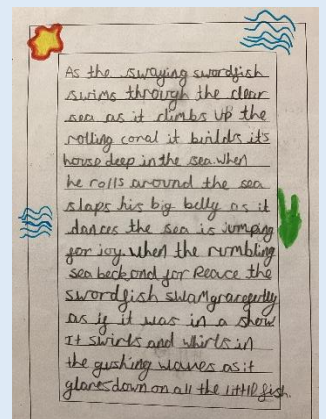 As the swaying swordfish
swims through the clear
sea as it climbs up the
rolling coral it builds it's
house deep in the sea. When
he rolls around the sea
slaps his big belly as it
dances the sea is jumping
for joy. When the rumbling
sea beckond for Peace the
swordfish swam gracefully
as if it was in a show
It swirls and whirls in
the gushing waves as it
glares down on all the little fish.